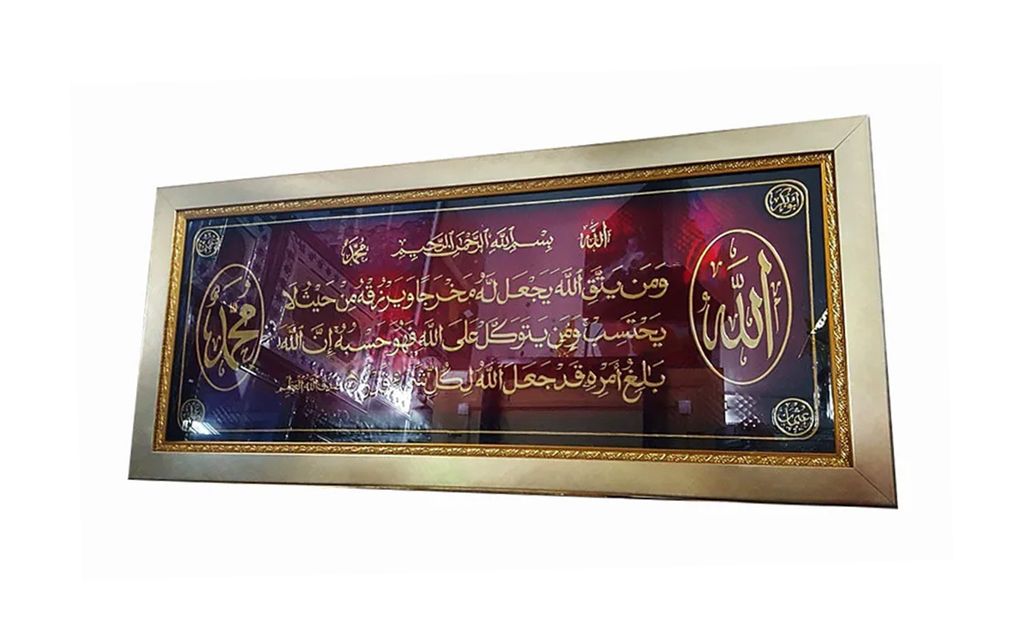 ابوبكر
الله بسم الله الرحمن الرحيم محمد
الله
وَمَن يَتَّقِ اللَّهَ يَجْعَل لَّهُ مَخْرَجًا وَيَرْزُقْهُ مِنْ حَيْثُ لَا
يَحْتَسِبُ وَمَن يَتَوَكَّلْ عَلَى اللَّهِ فَهُوَ حَسْبُهُ إِنَّ اللَّهَ
بَالِغُ أَمْرِهِ قَدْ جَعَلَ اللَّهُ لِكُلِّ شَيْءٍ قَدْرًا صدق الله العظيم
محمد
عثمان